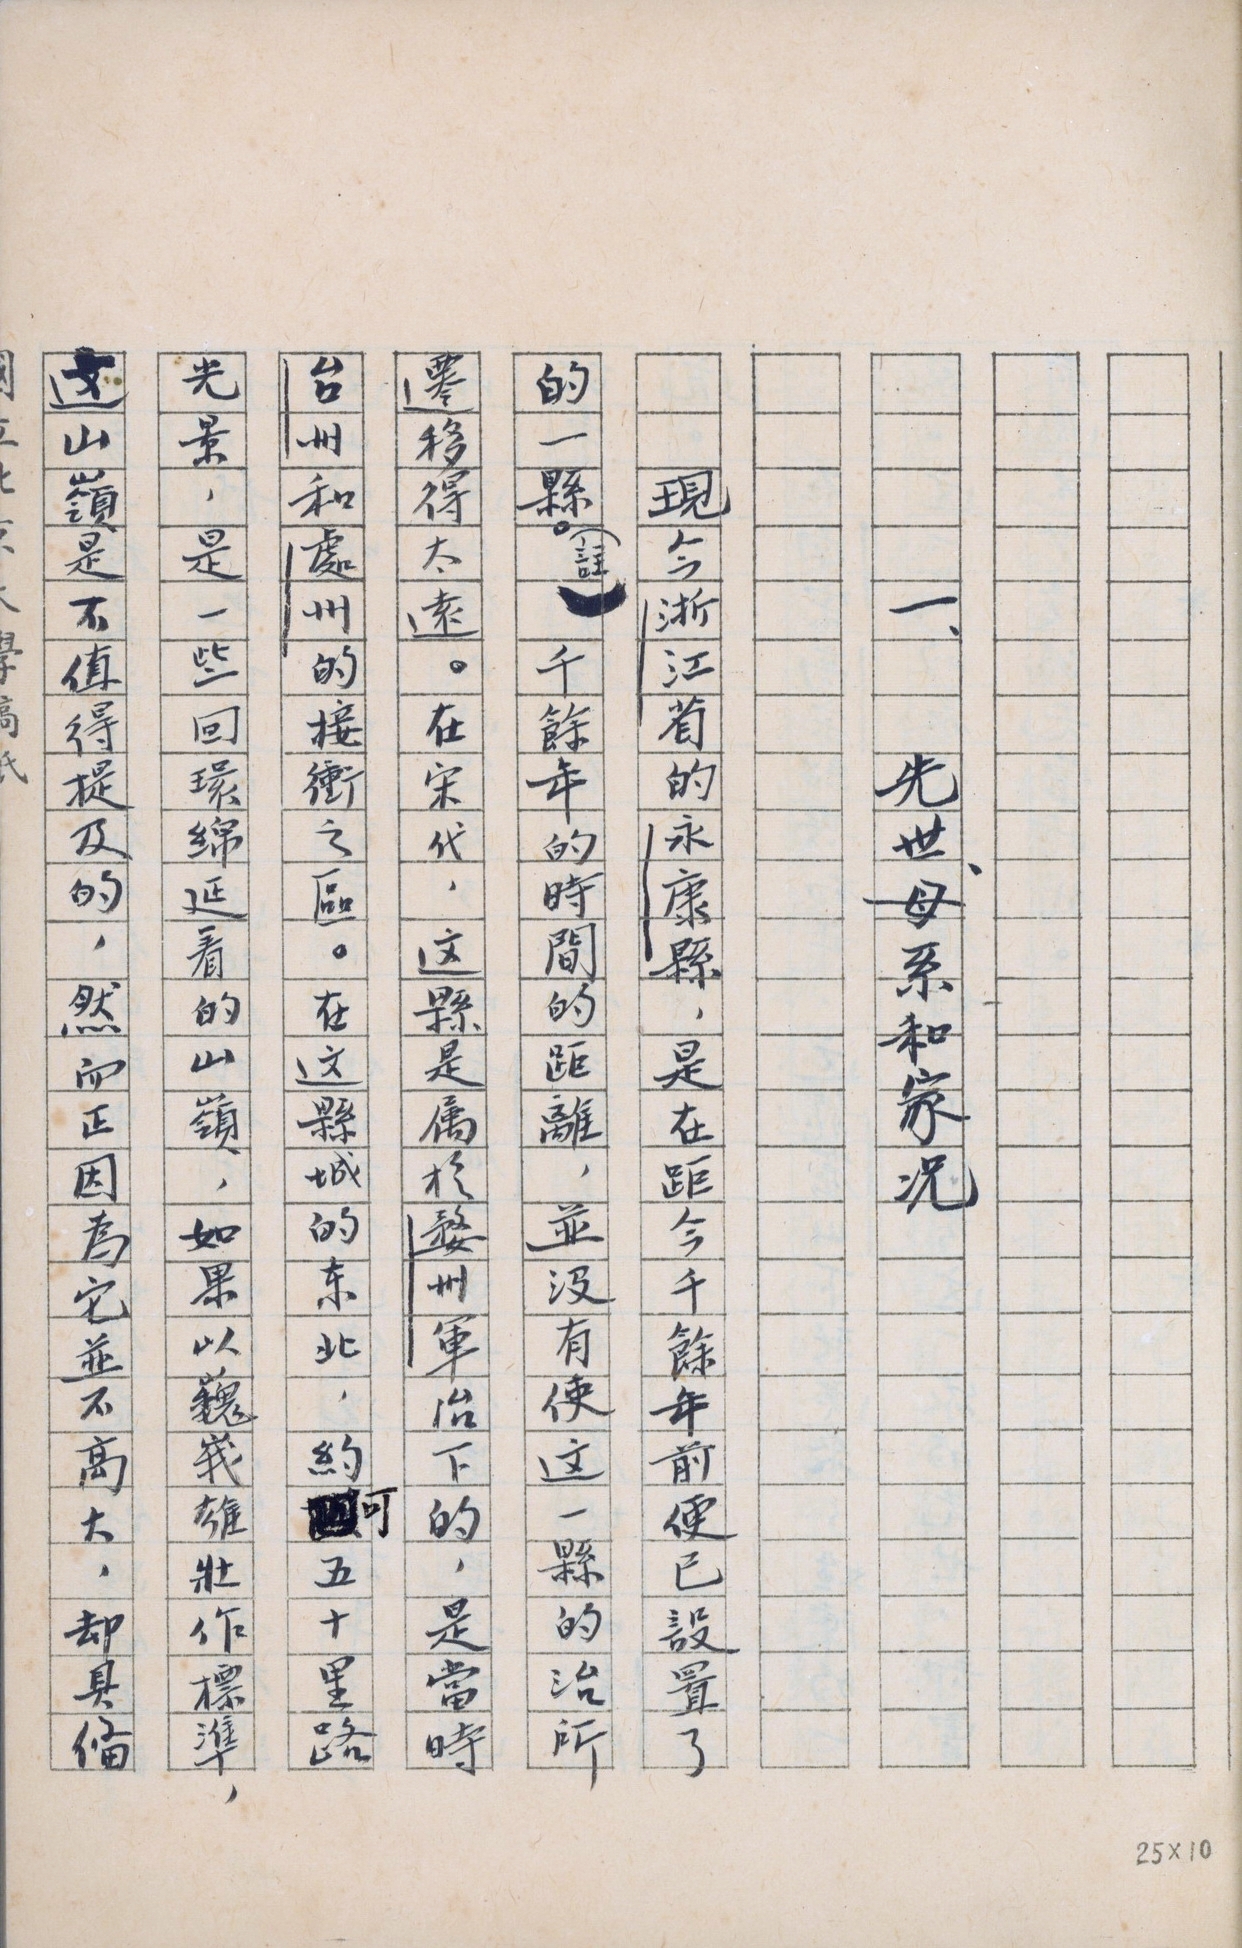 一、先世、母系和家况
現今浙江省的永康縣，是在距今千餘年前便已設置了
的一縣。（註）千餘年的時間的距離，並沒有使这一縣的治所
遷移得太遠。在宋代，这縣是属於婺州軍治下的，是當時
台州和處州的接衝之區。在这縣城的东北，約可五十里路
光景，是一些回環綿延着的山嶺，如果以巍峩雄壯作標準，
这山嶺是不值得提及的，然而正因為它並不高大，却具俻
國立北京大學稿紙
25×10